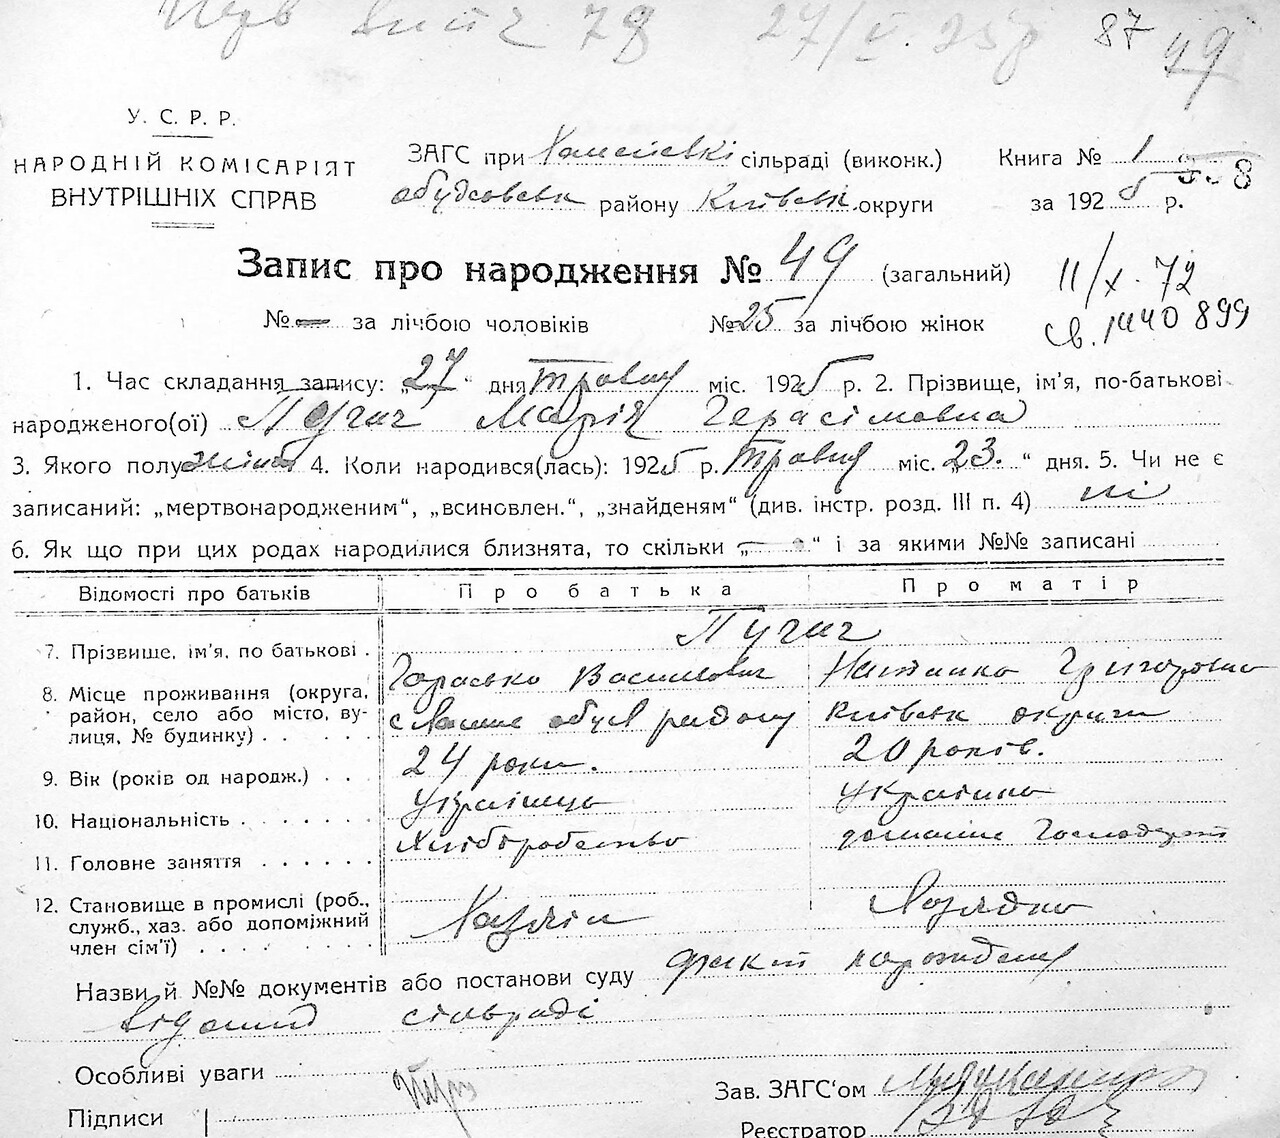 78 27/V. 25 р 87 49
У. С. Р. Р.
НАРОДНІЙ КОМІСАРІЯТ
ВНУТРІШНІХ СПРАВ
ЗАГС при сільраді (виконк.)
району Київськ. округи
Книга № 1
за 1925 р.
Запис про народження № 49 (загальний)
№ — за лічбою чоловіків № 25 за лічбою жінок
11/X. 72
св. 1440 899
1. Час складання запису: „27“ дня травня міс. 1925 р. 2. Прізвище, ім'я, по-батькові
народженого(ої) Пугач Марія Герасімовна
3. Якого полу жіноч 4. Коли народився(лась): 1925 р. травня міс. „23.“ дня. 5. Чи не є
записаний: „мертвонародженим“, „всиновлен.“, „знайденям“ (див. інстр. розд. III п. 4) ні
6. Як що при цих родах народилися близнята, то скільки „—“ і за якими №№ записані
Відомості про батьків Про батька Про матір
Пугач
7. Прізвище, ім'я, по батькові . Гарасько Василович Наталка Григоровна
8. Місце проживання (округа,
район, село або місто, ву- району Київськ округи
лиця, № будинку) . . . .
9. Вік (років од народж.) . . . 24 роки. 20 років.
10. Національність . . . . . . українець українка
11. Головне заняття . . . . . . Хліборобство домашнє господарст
12. Становище в промислі (роб.,
служб., хаз. або допоміжний Хазяїн Хазяйка
член сім'ї) . . . . . . . .
Назви й №№ документів або постанови суду факт народження
відомий сільраді
Особливі уваги
Зав. ЗАГС'ом
Підписи
Реєстратор